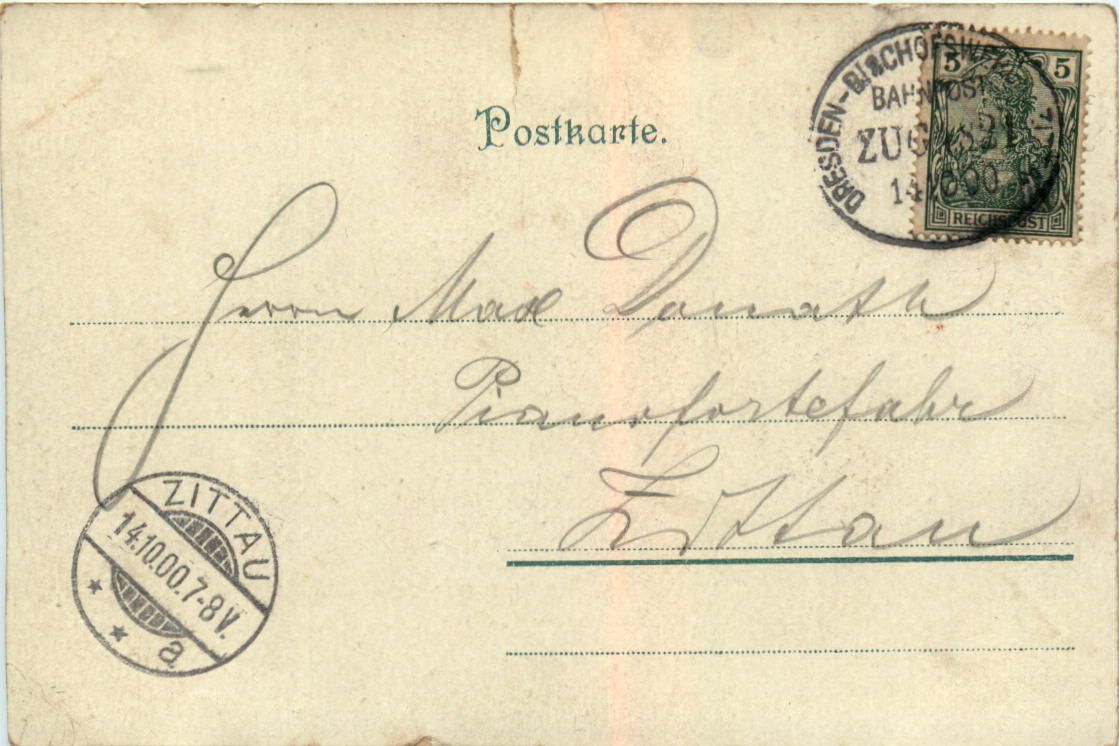 Postkarte.
DRESDEN-BISCHOFSW
BAHNPOST
ZUG
14.10.00
5 5
REICHSPOST
Herrn Max Donath
Pianofortefabr
Zittau
ZITTAU
14.10.00.7-8V.
a